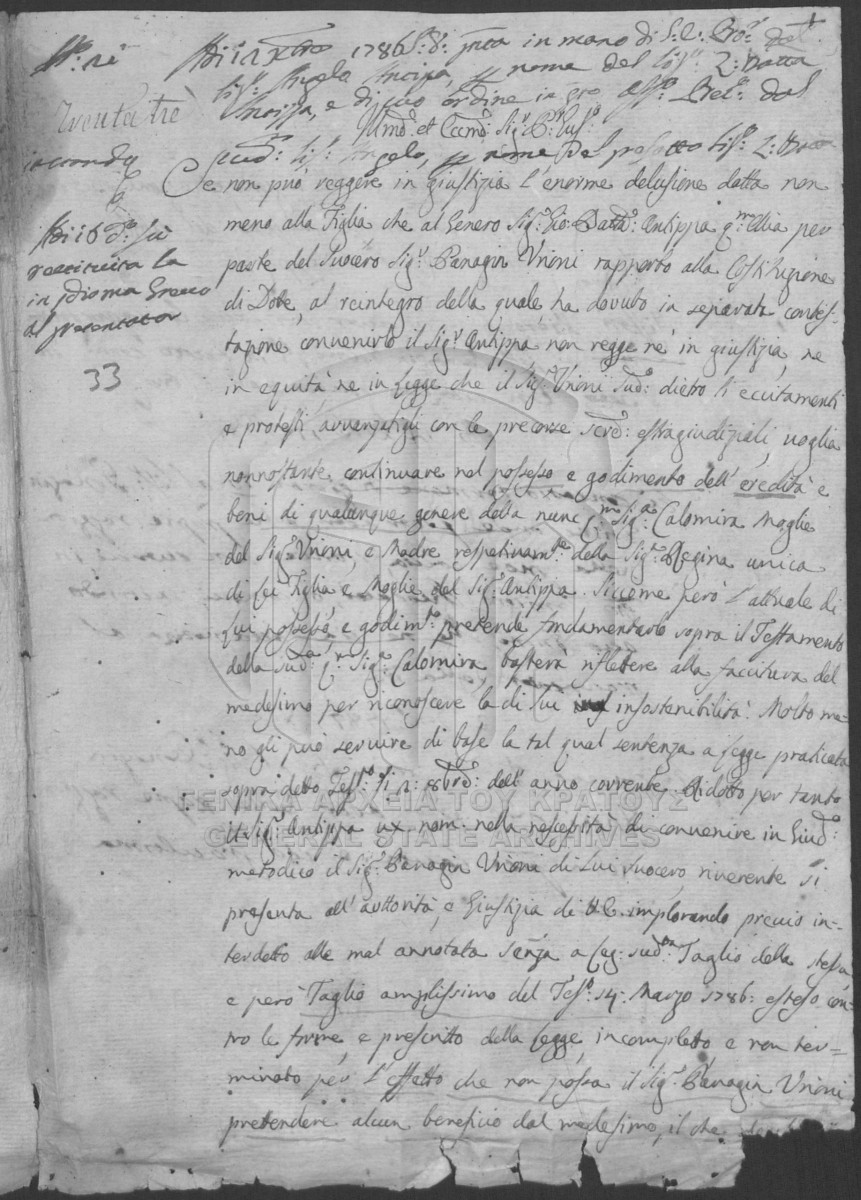 Adi 12 Xbre 1786 S. V. in mano di S. E. Pro.r dal
Sig.r Angelo Anoipa, nome del Sig.r Z: Batta
e di suo ordine in
Ill.mo et Ecc.mo Sig.r
Sud.o Sig.r Angelo, nome del prefatto Sig.r Z: Batta
Trentatrè
seconda
Adi 16 d.o fu
restituita la
in idioma Greco
al presentator
33
Se non può reggere in giustizia l'enorme delusione datta non
meno alla Figlia che al Genero Sig.r Gio: Batt.a Antippa q.m Elia per
parte del Suocero Sig.r Panagin Vrioni rapporto alla Costituzione
di Dote, al reintegro della quale ha dovuto in separata contes-
tazione convenirlo il Sig.r Antippa non regge nè in giustizia, ne
in equità, ne in Legge che il Sig.r Vrioni sud.o dietro li eccitamenti
e protesti avvanzatigli con le precorse scred: estragiudiziali, voglia
nonnostante continuare nel possesso e godimento dell' eredità e
beni di qualunque genere della nunc q.m Sig.a Calomira Moglie
del Sig.r Vrioni, e Madre respetivam.te della Sig.a Regina unica
di Lei Figlia e Moglie del Sig.r Antippa. Siccome però l'attuale di
Lui possesso, e godim.to pretende fondamentarlo sopra il Testamento
della sud.a q.m Sig.a Calomira, basterà rifletere alla faccitura del
medesimo per riconoscere la di Lui insostenibilità. Molto me-
no gli può servire di base la tal qual sentenza a Legge praticata
sopra detto Test.o li 2: 8bre dell' anno corrente. Ridotto per tanto
il Sig.r Antippa ux. nom. nella nescessità di convenire in Giud.o
metodico il Sig.r Panagin Vrioni di Lui suocero, riverente si
presenta all' auttorità, e Giustizia di V.E. implorando previo in-
terdetto alle mal annotata Senza a Leg: sud.a Taglio della stessa
e però Taglio amplissimo del Tes.to 14: Marzo 1786: esteso con-
tro le forme, e prescritto della Legge, incompleto e non ter-
minato per l'effetto che non possa il Sig.r Panagin Vrioni
pretendere alcun beneficio dal medesimo, il che
ΓΕΝΙΚΑ ΑΡΧΕΙΑ ΤΟΥ ΚΡΑΤΟΥΣ
GENERAL STATE ARCHIVES